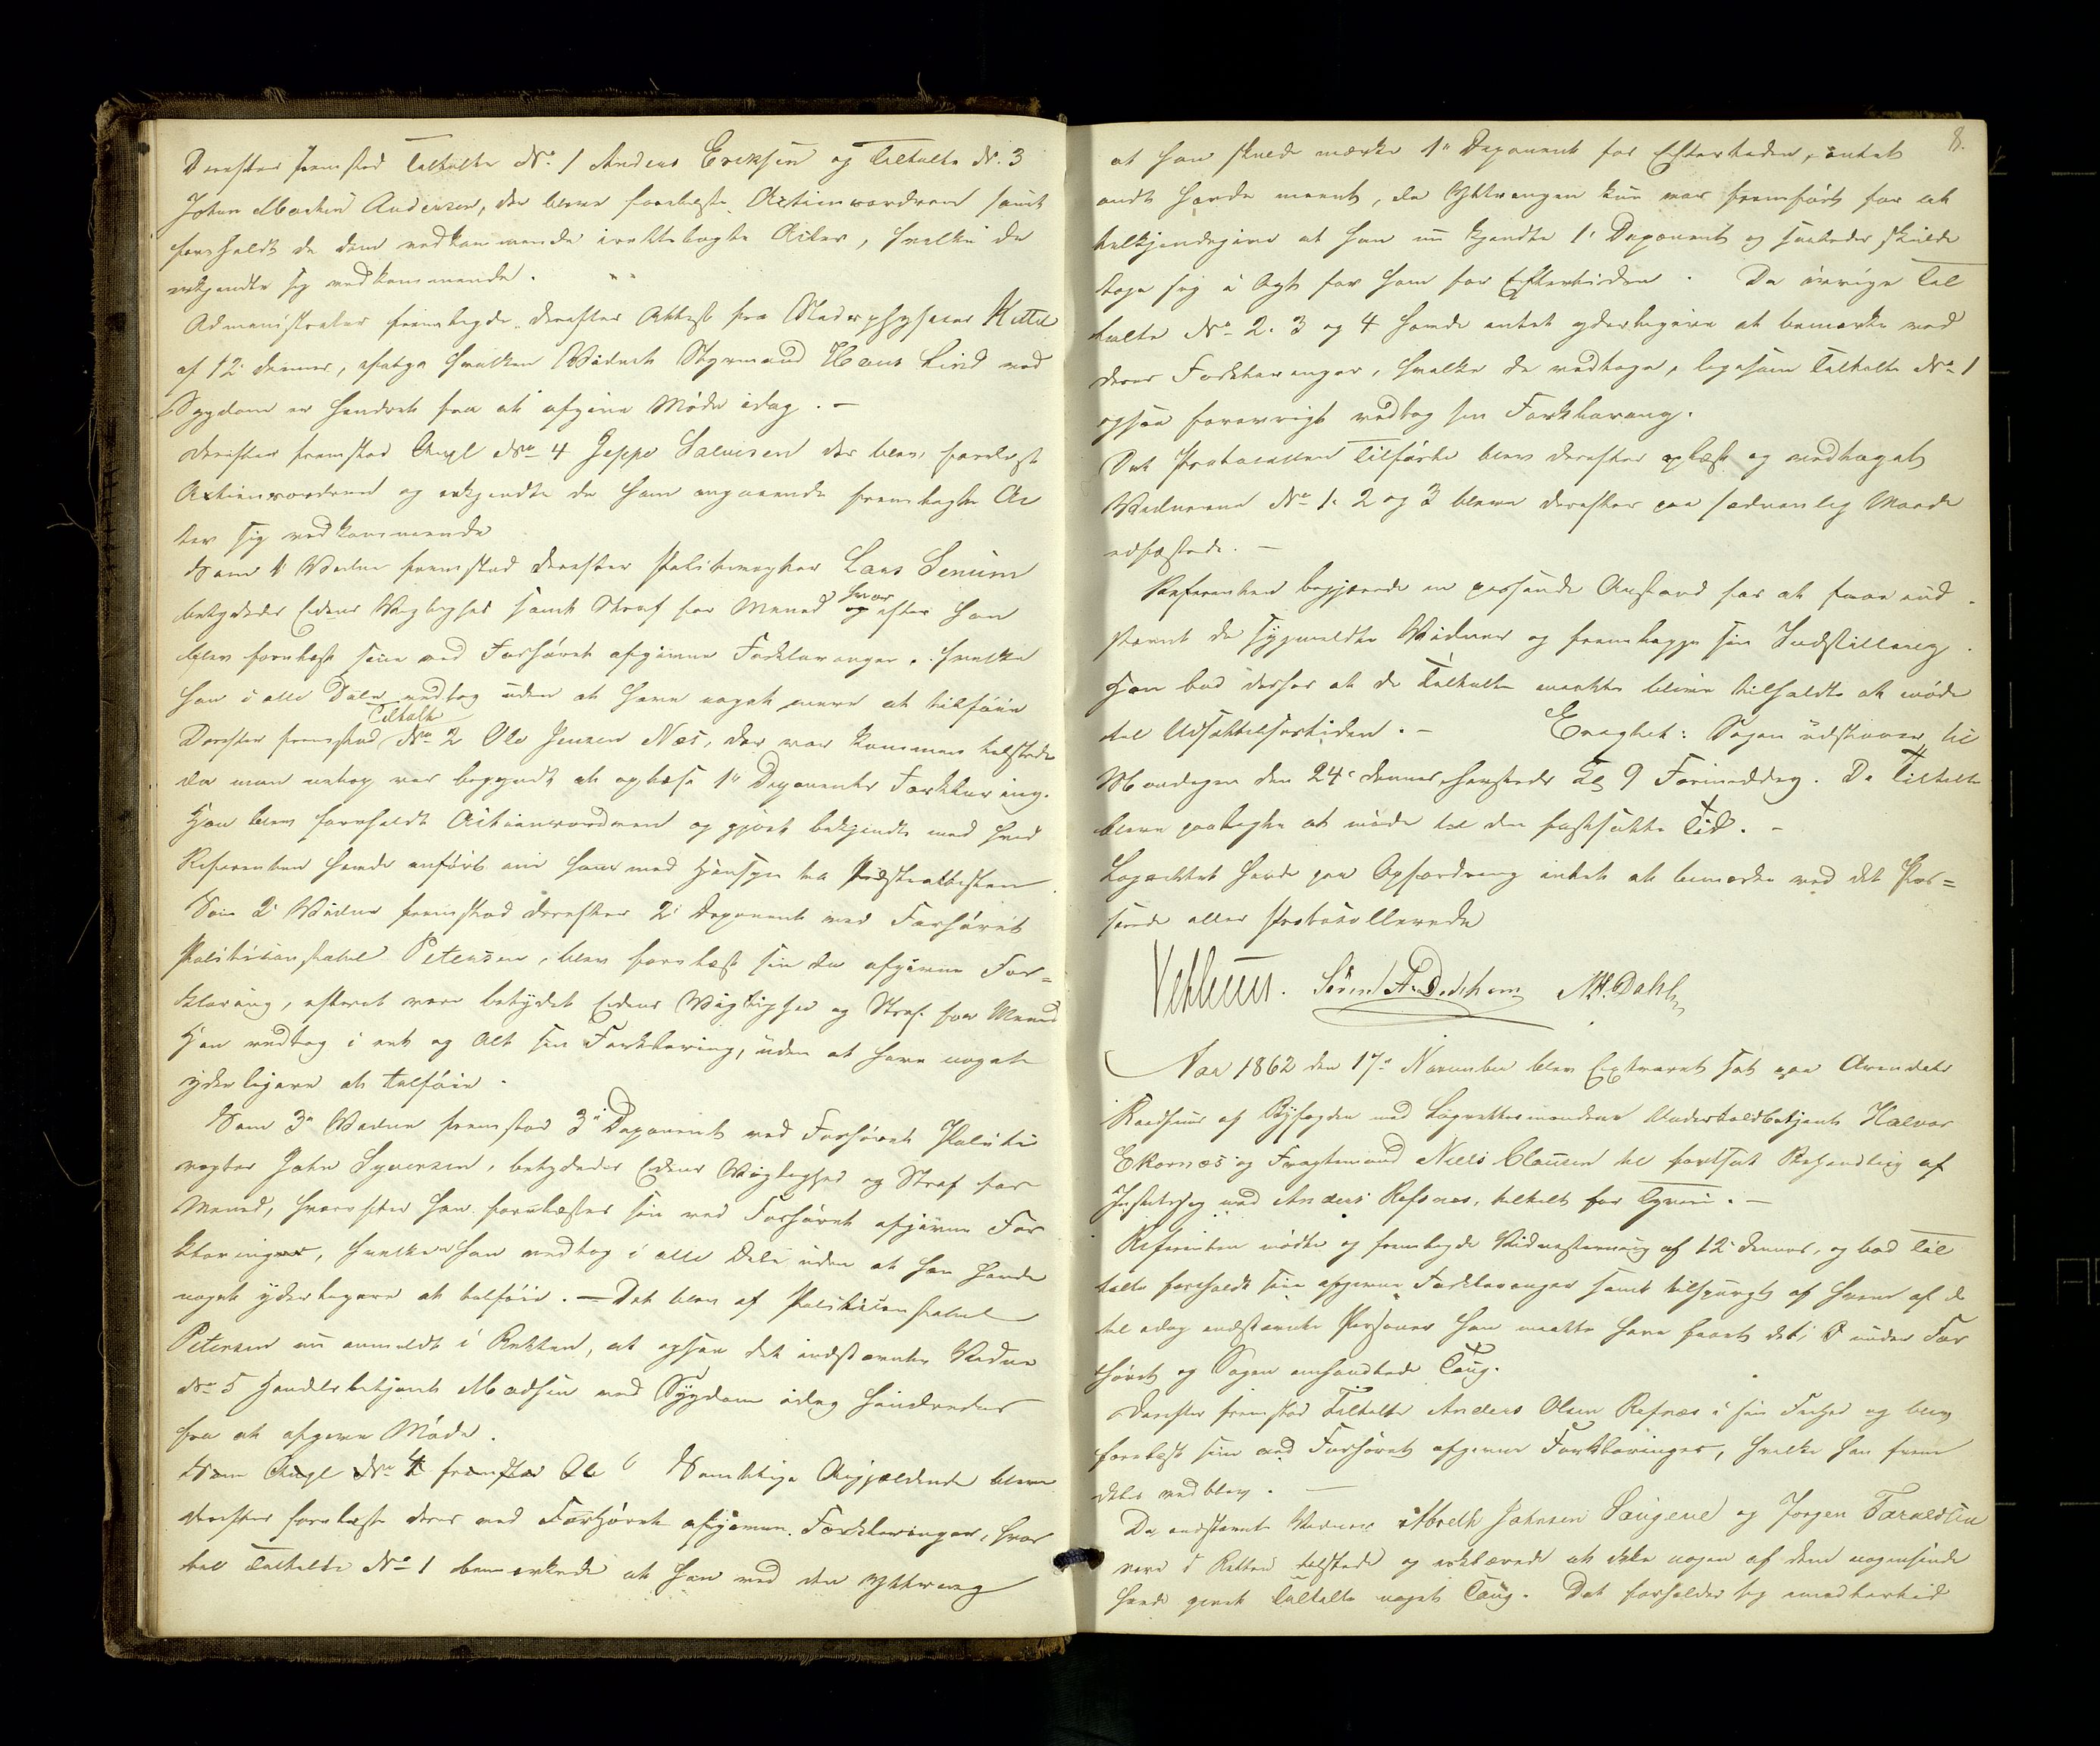 Derefter fremstod Tiltalte No. 1 Anders Eriksen og Tiltalte No. 3
Johan Martin Andersen, der bleve forelæste Actionsordren samt
foreholdt de dem vedkommende irettelagte Acter, hvilke de
erkjendte sig vedkommende.
Administrator fremlagde derefter Attest fra Stadsphysicus
af 12 dennes, ifølge hvilken Vidnet Styrmand Hans Lind ved
Sygdom er hindret fra at afgive Møde idag. –
Derefter fremstod Angl No 4 Jeppe Salvesen der blev forelæst
Actionsordren og erkjendte de ham angaaende fremlagte Ac
ter sig vedkommende
Som 1 Vidne fremstod derefter Politivægter Lars Senum
betydedes Edens Vigtighed samt Straf for Meened hvor
og efter han
blev forelæst sine ved Forhøret afgivne Forklaringer, hvilke
han i alle Dele vedtog uden at have noget mere at tilføie
Tiltalte
Derefter fremstod No 2 Ole Jensen Næs, der var kommen tilstede
da man netop var begyndt at oplæse 1' Deponents Forklaring.
Han blev foreholdt Actionsordren og gjort bekjendt med hvad
Referenten havde anført om ham med Hensyn til Præsteattesten
Som 2' Vidne fremstod derefter 2' Deponent ved Forhøret
Politiconstabel Petersen, blev forelæst sin der afgivne For=
klaring, efterat være betydet Edens Vigtighed og Straf for Meened
Han vedtog i eet og Alt sin Forklaring, uden at have noget
yderligere at tilføie.
Som 3' Vidne fremstod 3' Deponent ved Forhøret Politi
vægter John Syversen, betydedes Edens Vigtighed og Straf for
Meened, hvorefter han forelæstes sin ved Forhøret afgivne For
klaringer, hvilken han vedtog i alle Dele uden at han havde
noget yderligere at tilføie. – Det blev af Politiconstabel
Petersen nu anmeldt i Retten, at ogsaa det indstævnte Vidne
No 5 Handelsbetjent Madsen ved Sygdom idag hindredes
fra at afgive Møde.
Som Angl No 4 fremstod Ole Samtlige Angjældende bleve
derefter forelæste deres ved Forhøret afgivne Forklaringer, hvor
til Tiltalte No 1 bemærkede at han ved den Yttring
8.
at han skulde mærke 1' Deponent for Eftertiden, intet
ondt havde meent, da Yttringen kun var fremført for at
tilkjendegive at han nu kjendte 1' Deponent og saaledes skulde
tage sig i Agt for ham for Eftertiden. De øvrige Til
talte No 2. 3 og 4 havde intet yderligere at bemærke ved
deres Forklaringer, hvilke de vedtoge, ligesom Tiltalte No 1
ogsaa forøvrigt vedtog sin Forklaring.
Det Protocollen Tilførte blev derefter oplæst og vedtaget
Vidnerne No 1. 2 og 3 bleve derefter paa sædvanlig Maade
edfæstede. –
Referenten begjærede en passende Anstand for at faae ind
stævnt de sygmeldte Vidner og fremlægge sin Indstilling.
Han bad derhos at de Tiltalte maatte blive tilholdte at møde
til Udsættelsestiden. – Eragtet: Sagen udstaaer til
Mandagen den 24' dennes hersteds Kl 9 Formiddag. De Tiltalte
bleve paalagte at møde til den fastsatte Tid. –
Lagrettet havde paa Opfordring intet at bemærke ved det Pas=
serede eller Protocollerede
M. Dahl
Aar 1862 den 17' November blev Extraret sat paa Arendals
Raadhuus af Byfogden med Lagrettesmændene Undertoldbetjent Halvor
Ekornæs og Fragtemand Niels Clausen til fortsat Behandling af
Justitssag mod Anders Refsnæs, tiltalt for Tyveri. –
Referenten mødte og fremlagde Vidnestevning af 12 dennes, og bad Til
talte foreholdt sine afgivne Forklaringer samt tilspurgt af hvem af de
til idag indstævnte Personer han maatte have faaet det i under For
høret og Sagen omhandlede Toug.
Derefter fremstod Tiltalte Anders Olsen Refnæs i sin Frihed og blev
forelæst sine ved Forhøret afgivne Forklaringer, hvilke han frem
deles vedblev. –
De indstævnte Vidner Johnsen Saugene og Jørgen Taraldsen
vare i Retten tilstede og erklærede at ikke nogen af dem nogensinde
havde givet Tiltalte noget Toug. Det forholder sig imidlertid